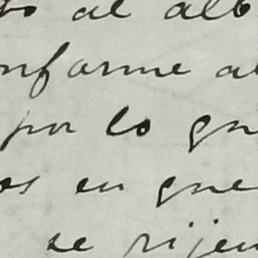 to al alb
nforme al
por lo que
os en que
se rijen